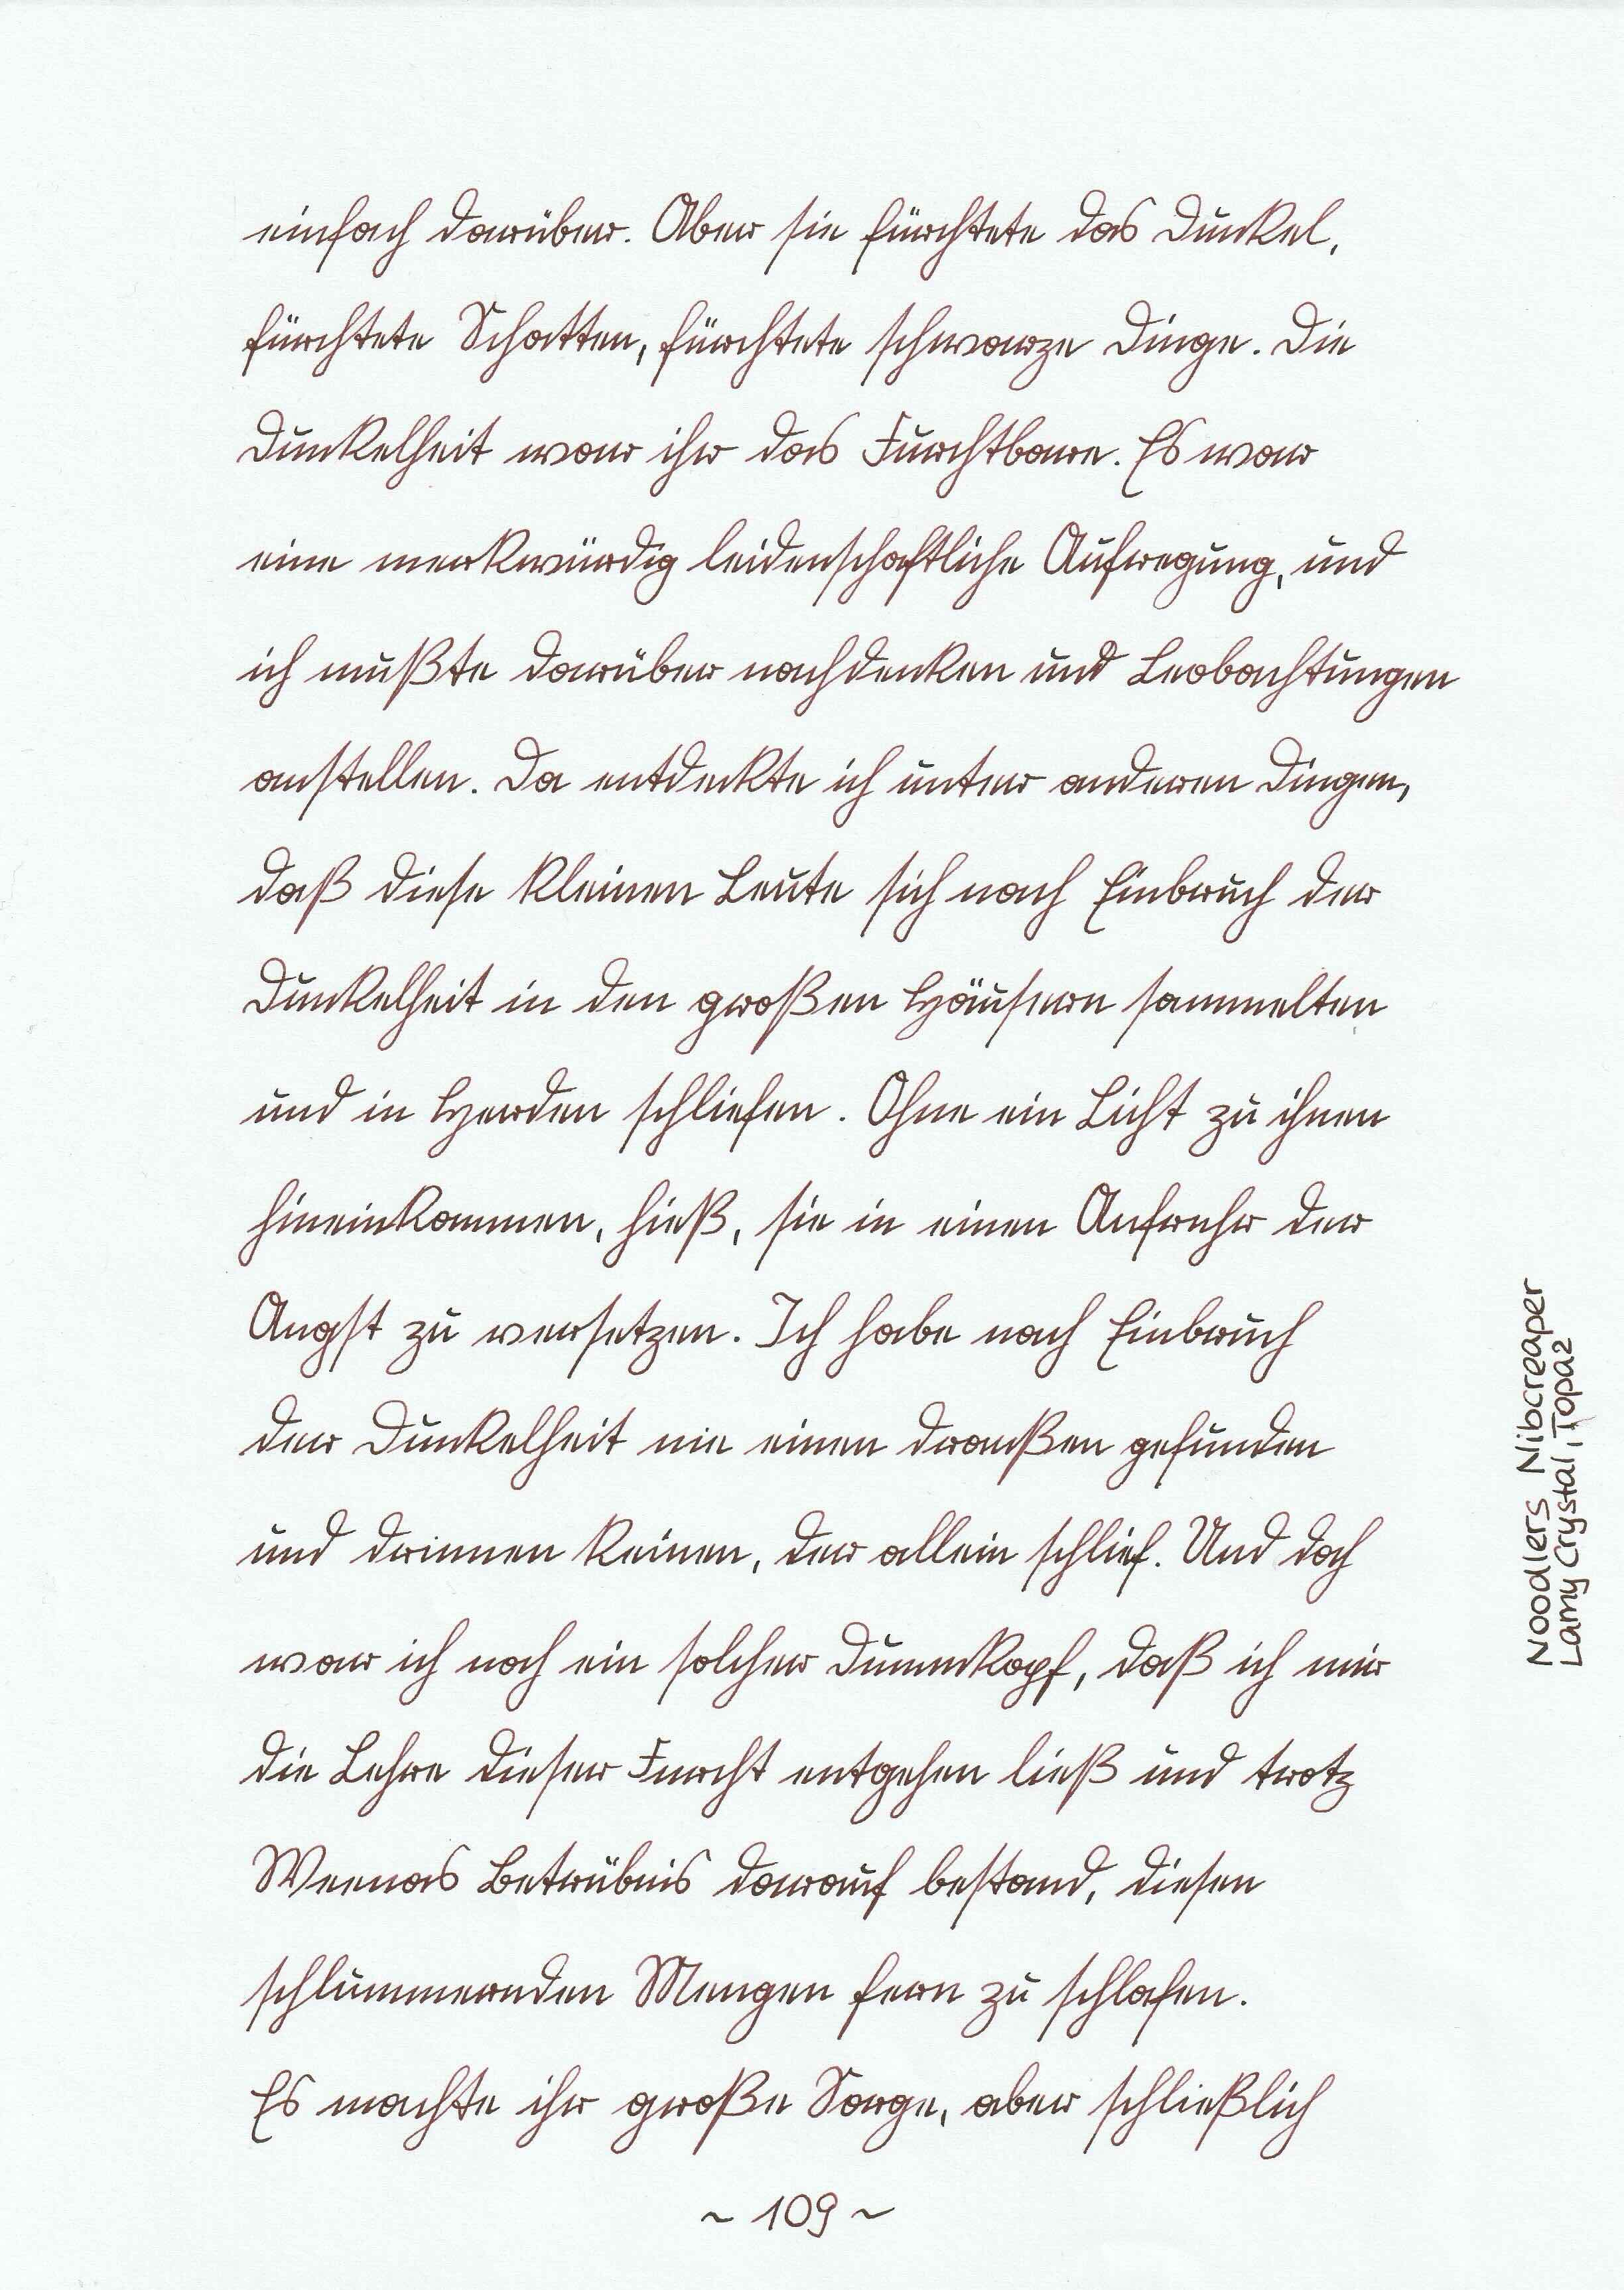 einfach darüber. Aber sie fürchtete das Dunkel,
fürchtete Schatten, fürchtete schwarze Dinge. Die
Dunkelheit war ihr das Furchtbare. Es war
eine merkwürdig leidenschaftliche Aufregung, und
ich mußte darüber nachdenken und Beobachtungen
anstellen. Da entdeckte ich unter anderen Dingen,
daß diese kleinen Leute sich nach Einbruch der
Dunkelheit in den großen Häusern sammelten
und in Herden schliefen. Ohne ein Licht zu ihnen
hineinkommen, hieß, sie in einen Aufruhr der
Angst zu versetzen. Ich habe nach Einbruch
der Dunkelheit nie einen draußen gefunden
und drinnen keinen, der allein schlief. Und doch
war ich noch ein solcher Dummkopf, daß ich mir
die Lehre dieser Furcht entgehen ließ und trotz
Weenas Betrübnis darauf bestand, diesen
schlummernden Mengen fern zu schlafen.
Es machte ihr große Sorge, aber schließlich
~ 109 ~
Noodlers Nibcreaper
Lamy Crystal, Topaz